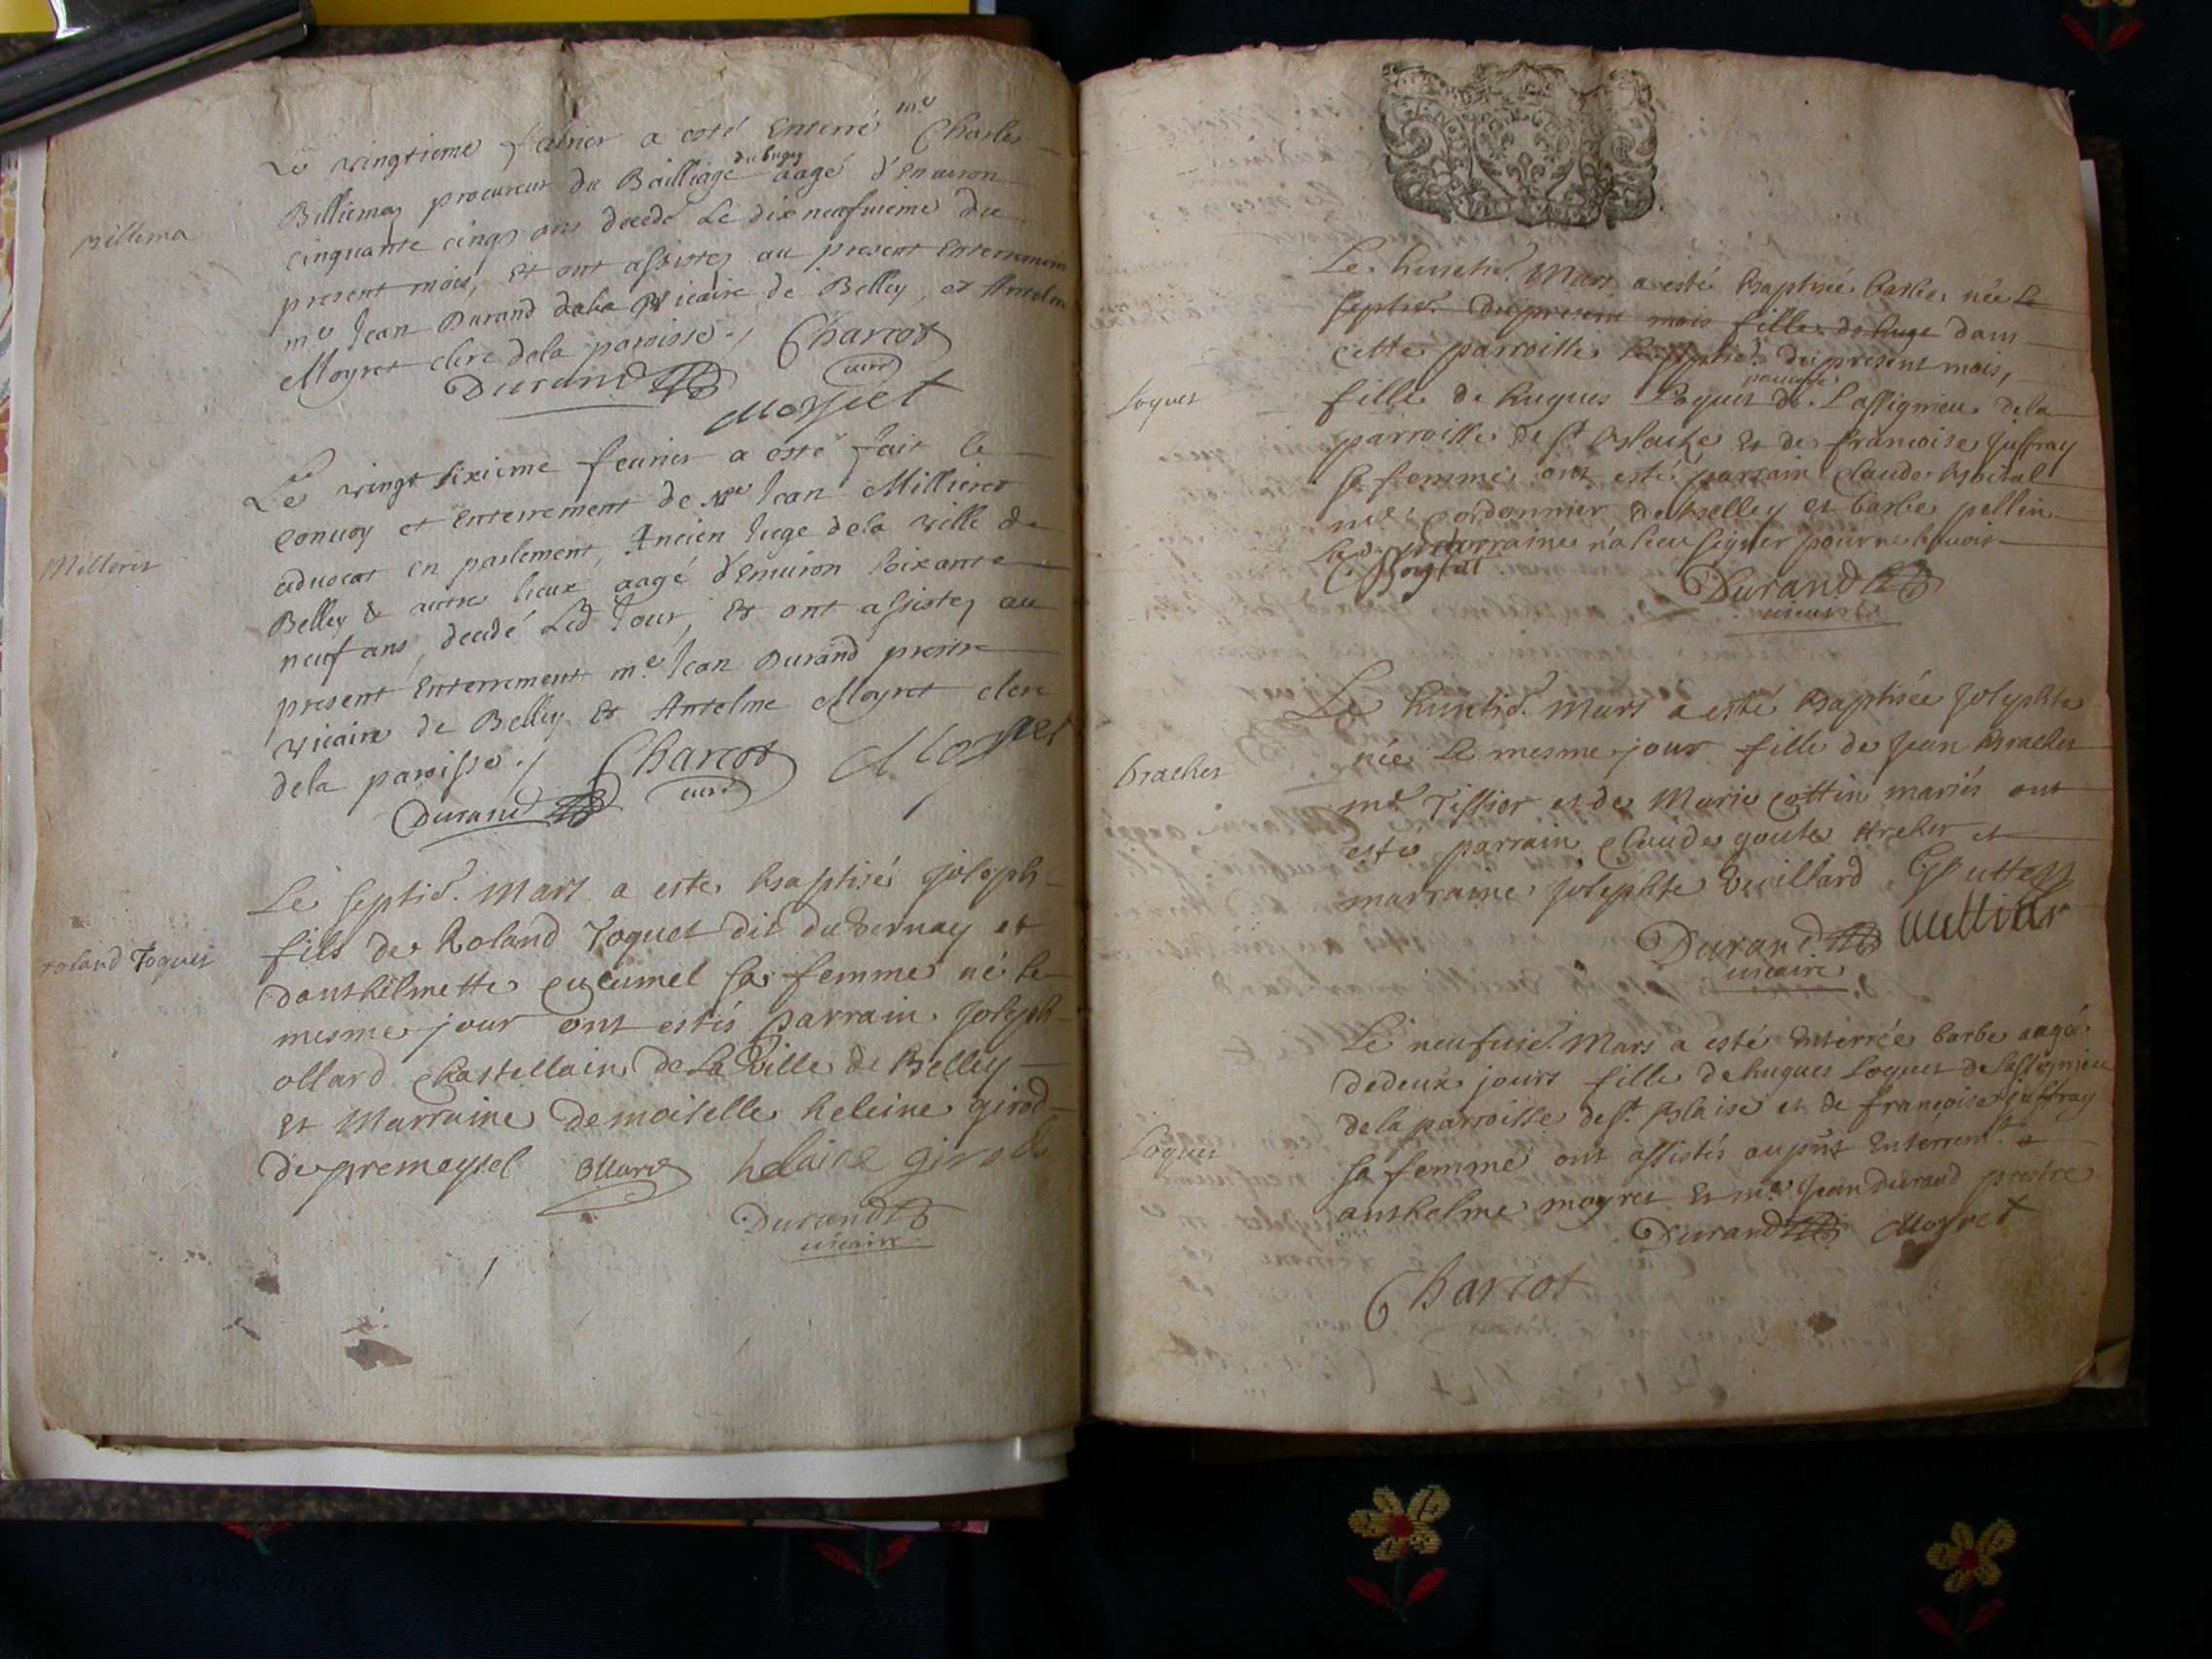 Le vingtieme febvrier a esté Enterré me Charles
Billiemaz procureur du Bailliage du bugey aagé d'Enuiron
cinquante cinq ans decedé Le dix neufuieme du
present mois, Et ont assistez au present Enterrement
me Jean Durand vicaire de Belley, et Antelme
Moyret clerc dela paroisse ./ Charcot
Durand curé
Moyret
billema
Le vingt sixieme feurier a esté fait le
conuoy et Enterrement de Me Jean Millieret
aduocat en parlement, Ancien Juge dela ville de
Belley & autre lieux aagé d'Enuiron soixante
neuf ans, decedé Led Jour, Et ont assistez au
present Enterrement me Jean Durand prestre
vicaire de Belley Et Antelme Moyret clerc
dela paroisse ./ Charcot Moyret
Durand curé
Milleret
Le septie. Mars a esté baptisé joseph
fils de Roland Toquet dit du Vernay et
danthelmette cucumel sa femme né le
mesme jour ont estés parrain joseph
ollard chastellain de La Ville de Belley
Et Marraine demoiselle heleine girod
de premeysel Ollard helaine girod
Durand
vicaire
roland Toquet
Le huictie. Mars a esté baptisée barbe née Le
septie. du present mois fille de huge dans
cette parroisse Le septie. du present mois,
fille de hugues Loquet de Lassignieu dela
parroisse de st blaise Et de francoise juffray
sa femme ont esté parrain Claude hopital
me cordonnier de belley et barbe pellin
La marraine n'a sceu signer pour ne sçauoir
Durand
vicaire
Loquet
Le huictie. Mars a esté baptisée josephte
née Le mesme jour fille de jean bracher
me Tissier et de Marie cottin mariés ont
esté parrain Claude goute archer et
marraine josephte Vuillard
Durand
vicaire
bracher
Le neufuie. Mars a esté Enterrée barbe aagée
dedeux jours fille de hugues Loquet de Lassignieu
dela parroisse de st blaise et de françoise juffray
sa femme ont assistés au pnt Enterremt.
anthelme moyret Et me Jean durand prestre
Durand Moyret
Charcot
Loquet